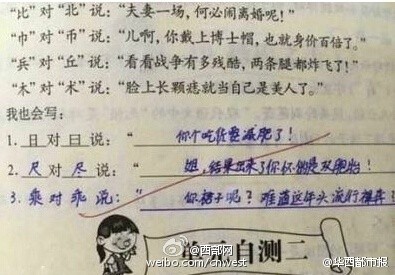 "比"对"北"说："夫妻一场，何必闹离婚呢！"
"巾"对"币"说："儿啊，你戴上博士帽，也就身价百倍了。"
"兵"对"丘"说："看看战争有多残酷，两条腿都炸飞了！"
"木"对"术"说："脸上长颗痣就当自己是美人了。"
我也会写：
1. 日 对 曰 说："你个吃货要减肥了！
2. 尺 对 尽 说："姐，结果出来了你怀的是双胞胎！
3. 乘 对 乖 说："你裙子呢？难道这年头流行裸奔！
自测二
@西部网
weibo.com/cnwest
@华西都市报